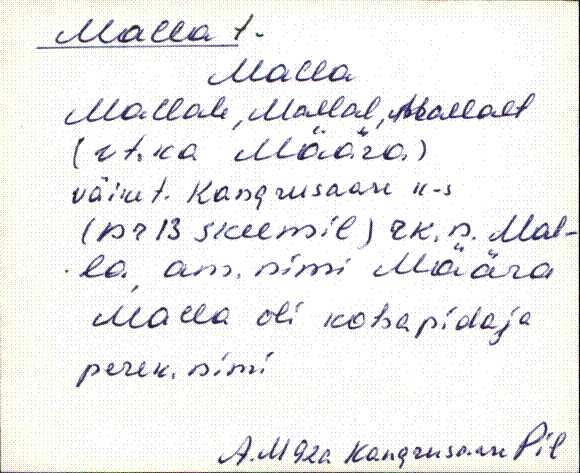 Malla t.
Malla
Mallale, Mallal, Mallalt
(vt. ka Määra)
väiket. Kangrusaare k-s
(nr 13 skeemil) rk. n. Mal-
la, am. nimi Määra
Malla oli kohapidaja
perek. nimi
A. Mäza Kangrusaare Pil